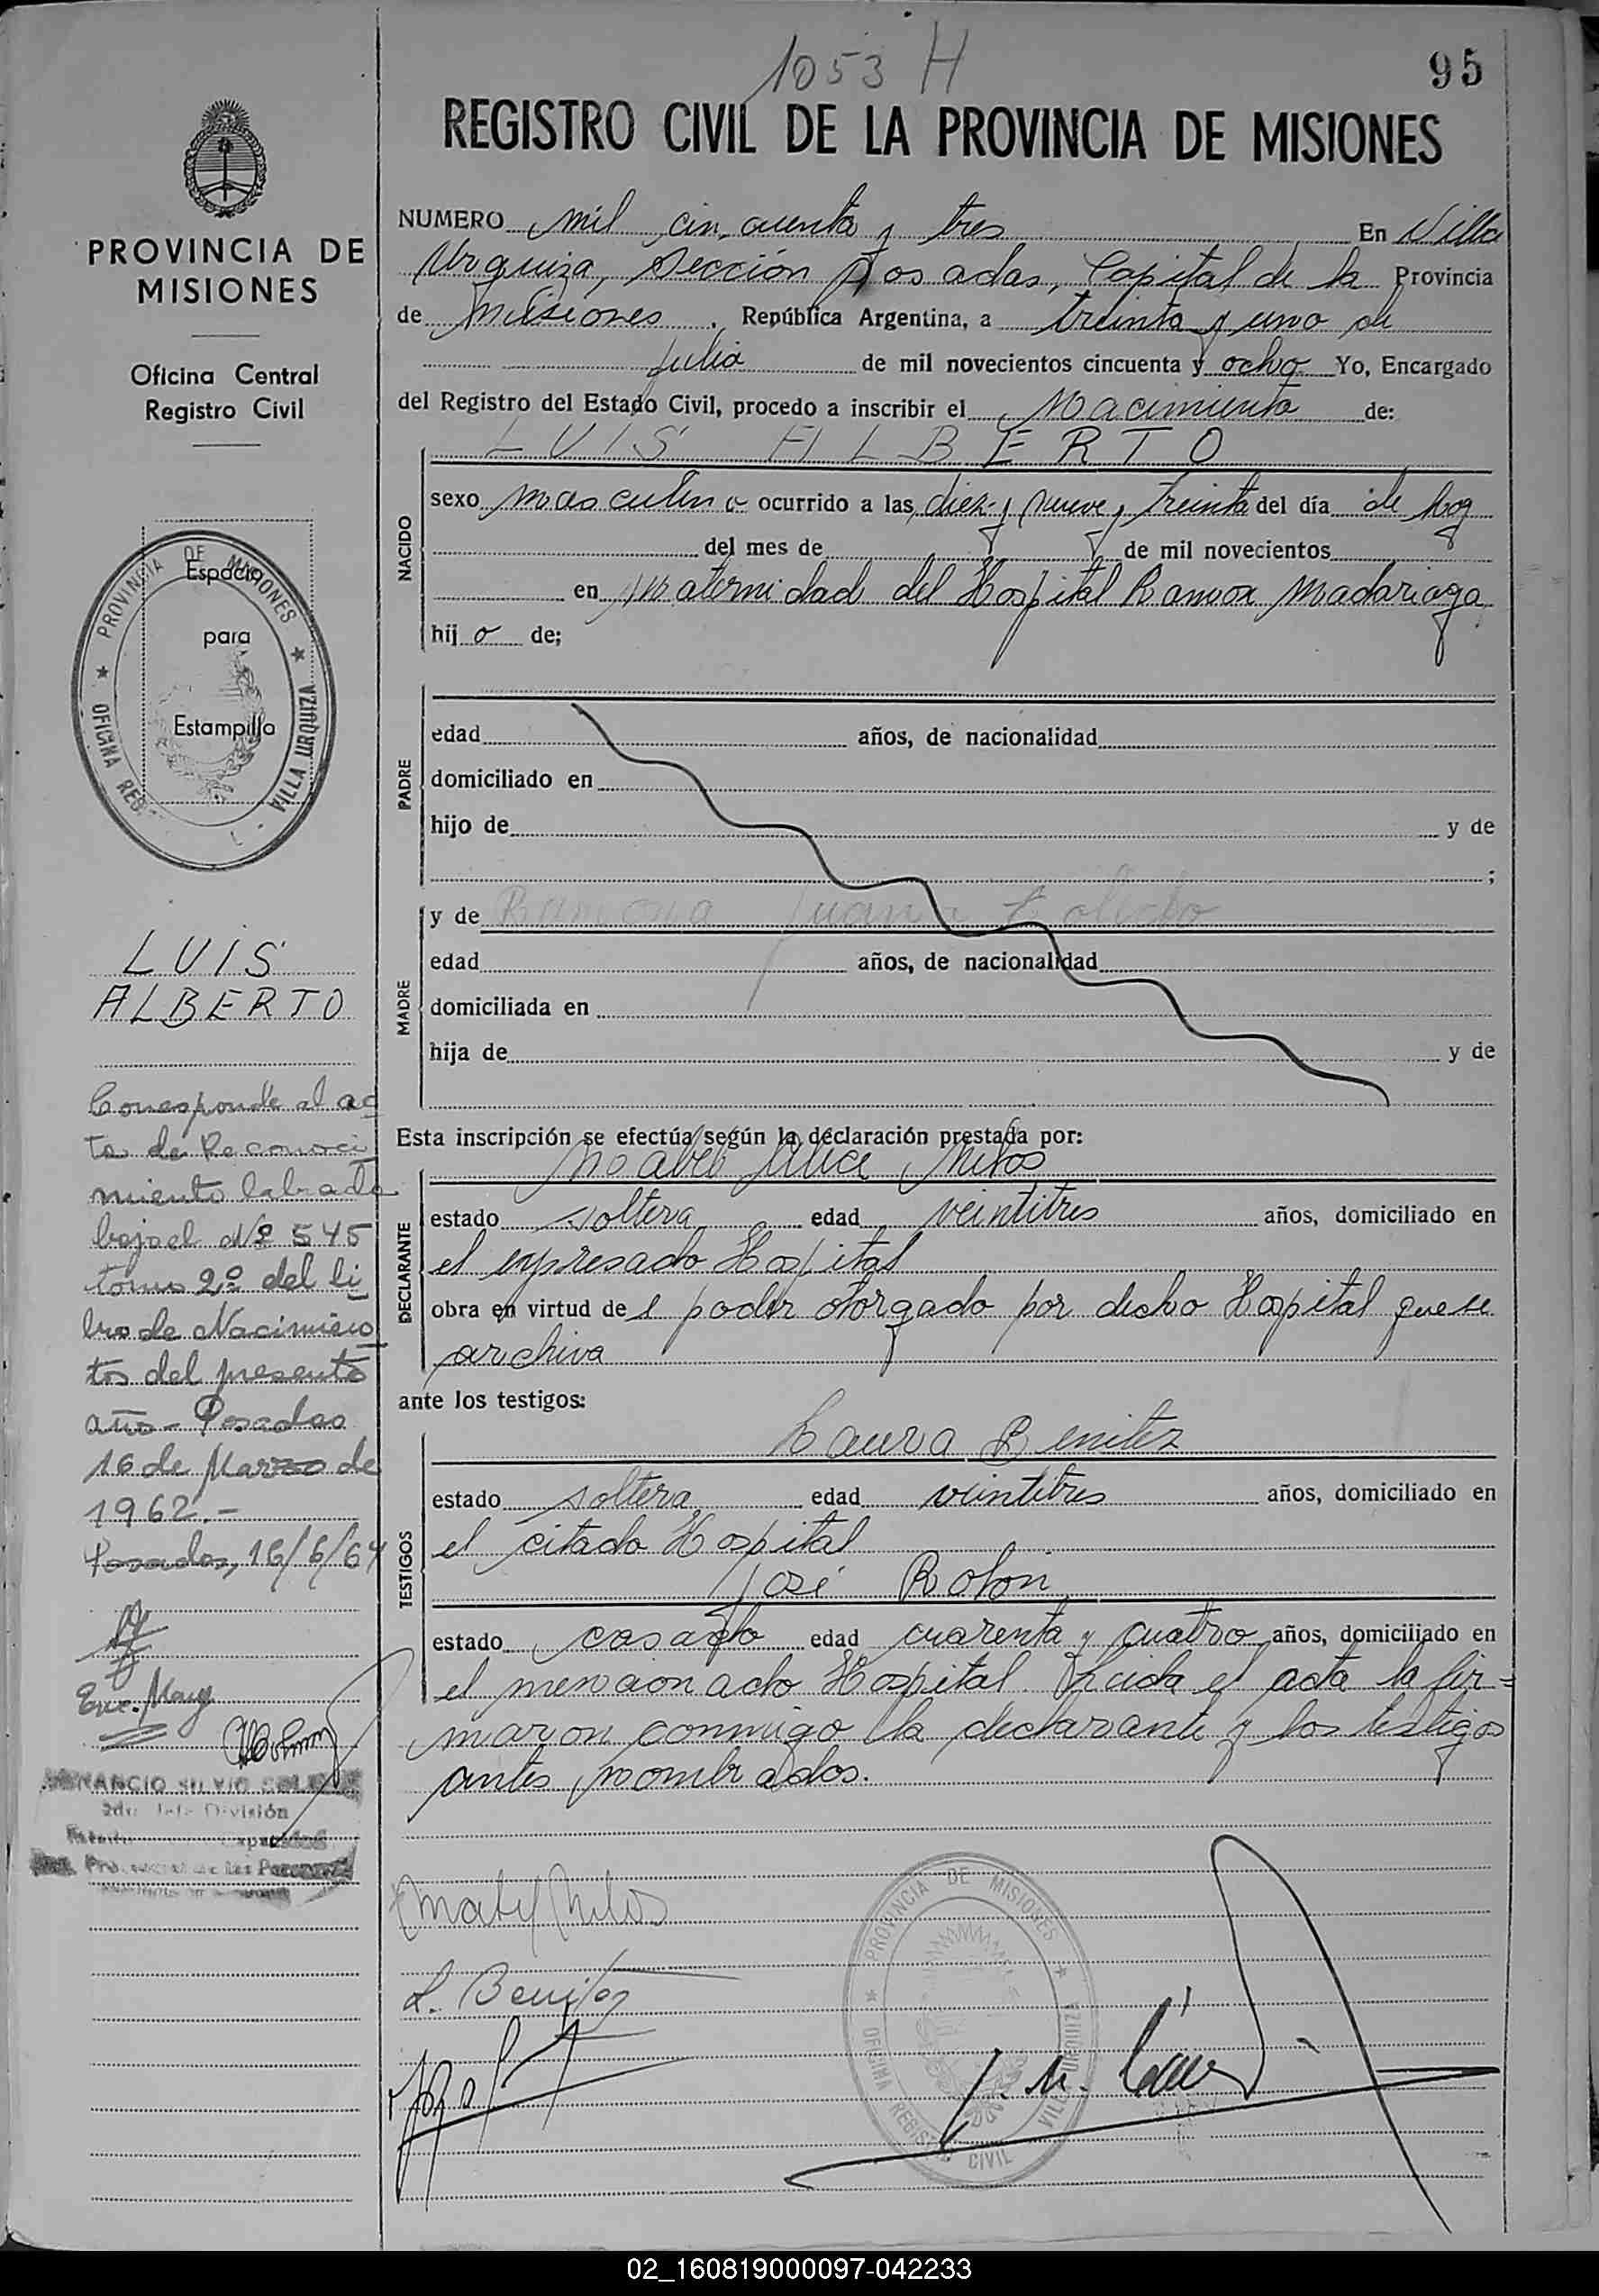 1053 H
95
REGISTRO CIVIL DE LA PROVINCIA DE MISIONES
PROVINCIA DE
MISIONES
Oficina Central
Registro Civil
PROVINCIA DE MISIONES
OFICINA REG
VILLA URQUIZA
Espacio
para
Estampilla
LUIS
ALBERTO
Corresponde al ac
ta de Reconoci
miento labrado
bajo el Nº 545
tomo 2º del li
bro de Nacimien
tos del presente
año - Posadas
16 de Marzo de
1962.-
Posadas, 16/6/64
Enc. Mayg
2do Jefe División
NUMERO mil cincuenta y tres En Villa
Urquiza, Sección Posadas, Capital de la Provincia
de Misiones , República Argentina, a treinta y uno de
Julio de mil novecientos cincuenta y ocho Yo, Encargado
del Registro del Estado Civil, procedo a inscribir el Nacimiento de:
LUIS ALBERTO
NACIDO
sexo masculino ocurrido a las diez y nueve y treinta del día de hoy
del mes de de mil novecientos
en Maternidad del Hospital Ramon Madariaga
hij o de;
PADRE
edad años, de nacionalidad
domiciliado en
hijo de y de
;
y de Ramona Juana Toledo
MADRE
edad años, de nacionalidad
domiciliada en
hija de y de
Esta inscripción se efectúa según la declaración prestada por:
Mabel Alice Milos
DECLARANTE
estado soltera edad veintitres años, domiciliado en
el expresado Hospital
obra en virtud de l poder otorgado por dicho Hospital que se
archiva
ante los testigos:
Laura Benitez
TESTIGOS
estado soltera edad veintitres años, domiciliado en
el citado Hospital
José Rolon
estado casado edad cuarenta y cuatro años, domiciliado en
el mencionado Hospital. Leida el acta la fir=
maron conmigo la declarante y los testigos
antes nombrados.
Mabel Milos
L. Benitez
PROVINCIA DE MISIONES
OFICINA REGISTRO CIVIL
VILLA URQUIZA
02_160819000097-042233